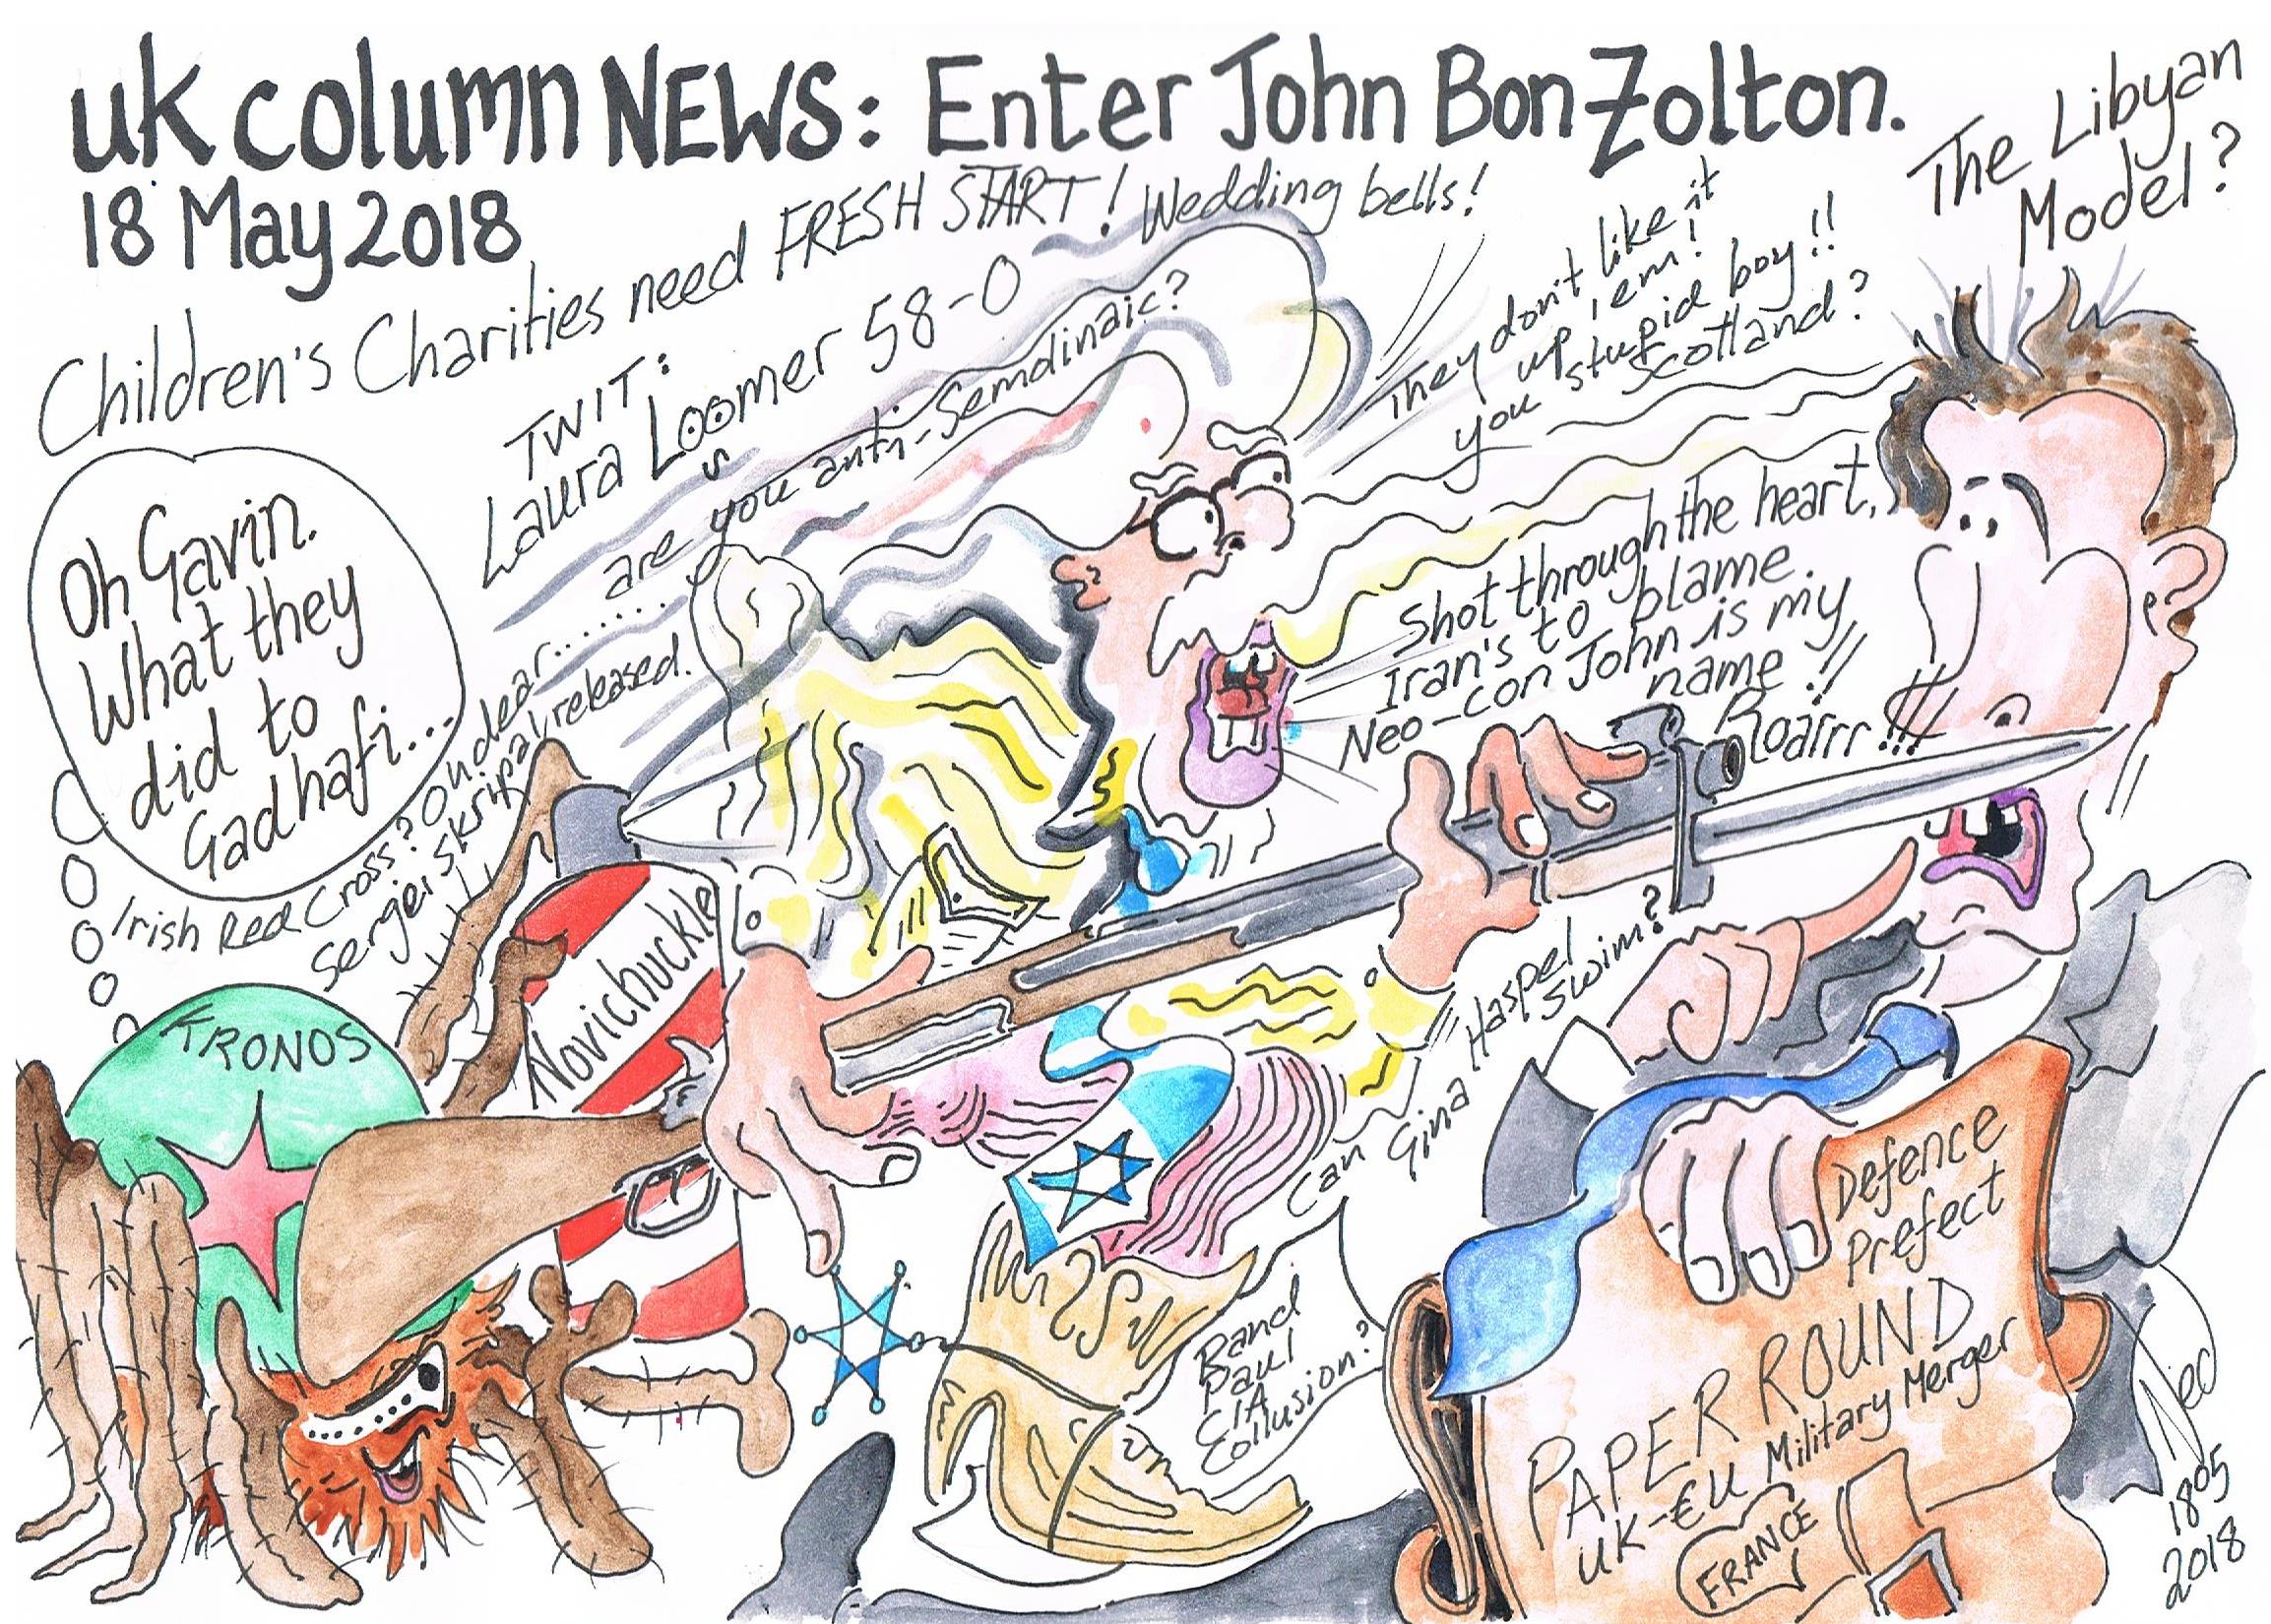 uk column NEWS: Enter John Bon Zolton.
18 May 2018
The Libyan
Model?
Children's Charities need FRESH START! Wedding bells!
TWIT:
Laura Loomer 58-0
s
are you anti-Semdinaic?
They don't like it
up 'em!
you stupid boy!!
Scotland?
Oh Gavin.
What they
did to
Gadhafi...
Shot through the heart,
Iran's to blame
Neo-con John is my
name !!
Roarrr!!!
Irish Red Cross? Oh dear........
Sergei Skripal released.
Novichuckle
KRONOS
Can Gina Haspel
swim?
Band
Paul
CIA
Collusion?
Defence
Prefect
PAPER ROUND
UK-€U Military Merger
FRANCE
1805
2018